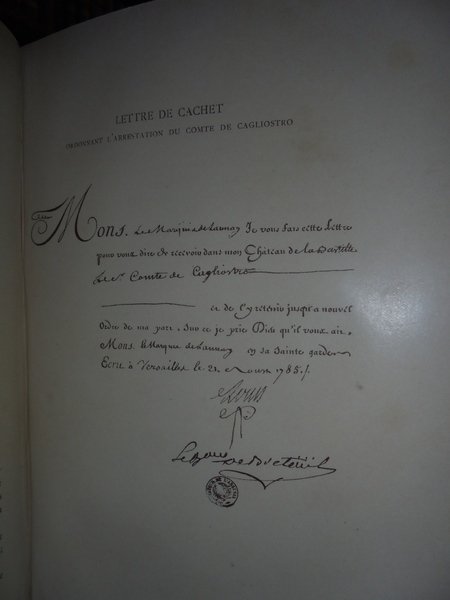 LETTRE DE CACHET
ORDONNANT L'ARRESTATION DU COMTE DE CAGLIOSTRO
Mons. Le Marquis de Launay Je vous fais cette lettre
pour vous dire de recevoir dans mon Château de la Bastille
Le Sr. Comte de Cagliostro
et de l'y retenir jusqu'a nouvel
ordre de ma part. Sur ce je prie Dieu qu'il vous ait,
Mons. le Marquis de Launay en sa Sainte garde
Ecrit à Versailles le 21 Aoust 1785./.
Louis
Le Bon De Breteuil